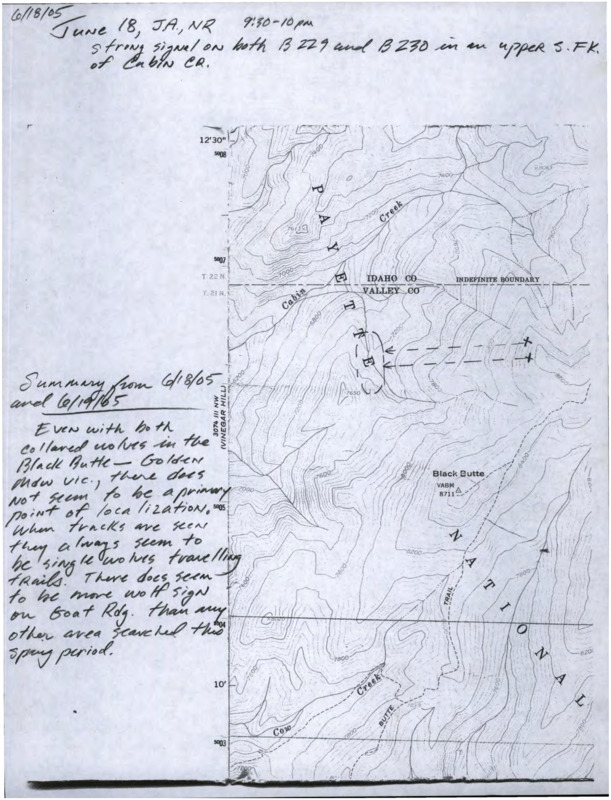 6/18/05
June 18, JA, NR 9:30-10pm
strong signal on both B229 and B230 in an upper S. FK.
of Cabin CR.
12'30"
5008
7600
P A Y E T T E
Creek
5007
T. 22 N.
T. 21 N.
IDAHO CO
VALLEY CO
INDEFINITE BOUNDARY
Cabin
Summary from 6/18/05
and 6/19/05
Even with both
collared wolves in the
Black Butte — Golden
vic., there does
not seem to be a primary
point of localization.
When tracks are seen
they always seem to
be single wolves travelling
trails. There does seem
to be more wolf sign
on Goat Rdg. than any
other area searched this
spring period.
3074 III NW
(VINEGAR HILL)
Black Butte
VABM
8711
5005
N A T I O N A L
TRAIL
5004
10'
Creek
BUTTE
Cow
5003